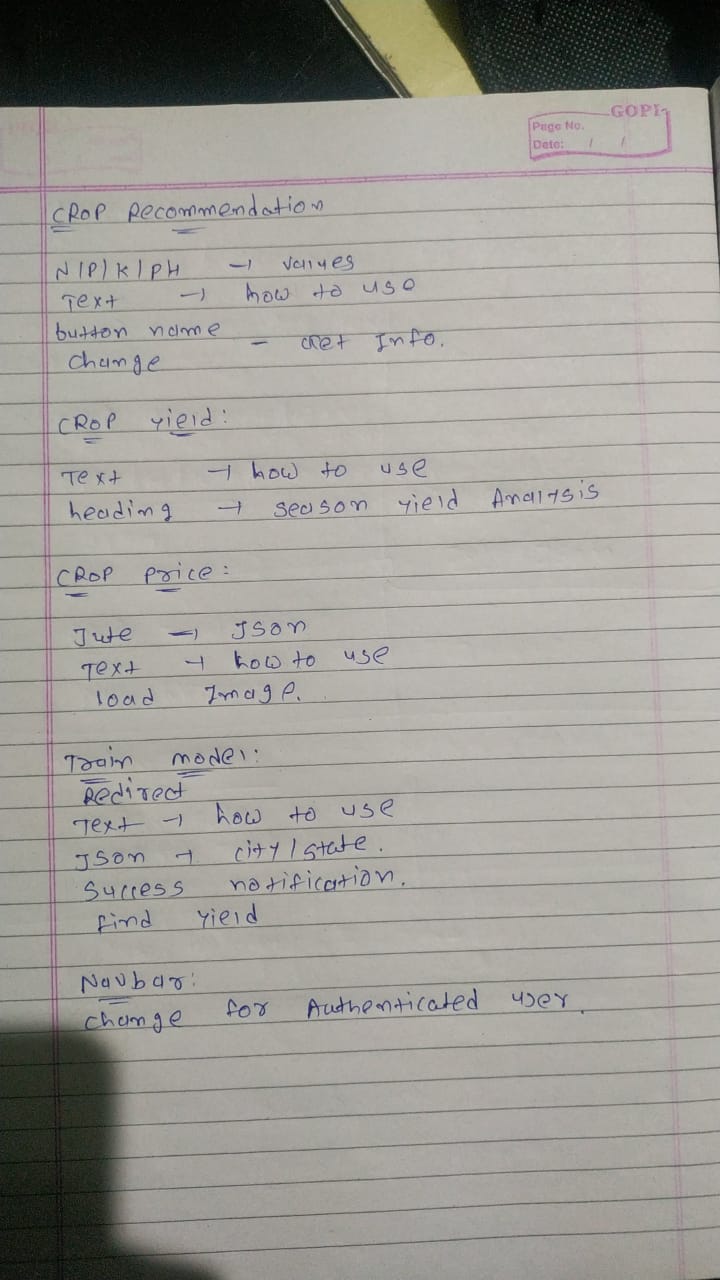 GOPI
Page No.
Date: / /
CROP Recommendation
N/P/K/PH → values
Text → how to use
button name
change - Get Info.
CROP yield:
Text → how to use
heading → season yield Analysis
CROP price:
Jute → Json
Text → how to use
load Image.
Train model:
Redirect
Text → how to use
Json → city/state.
Success notification.
find yield
Navbar:
change for Authenticated user.